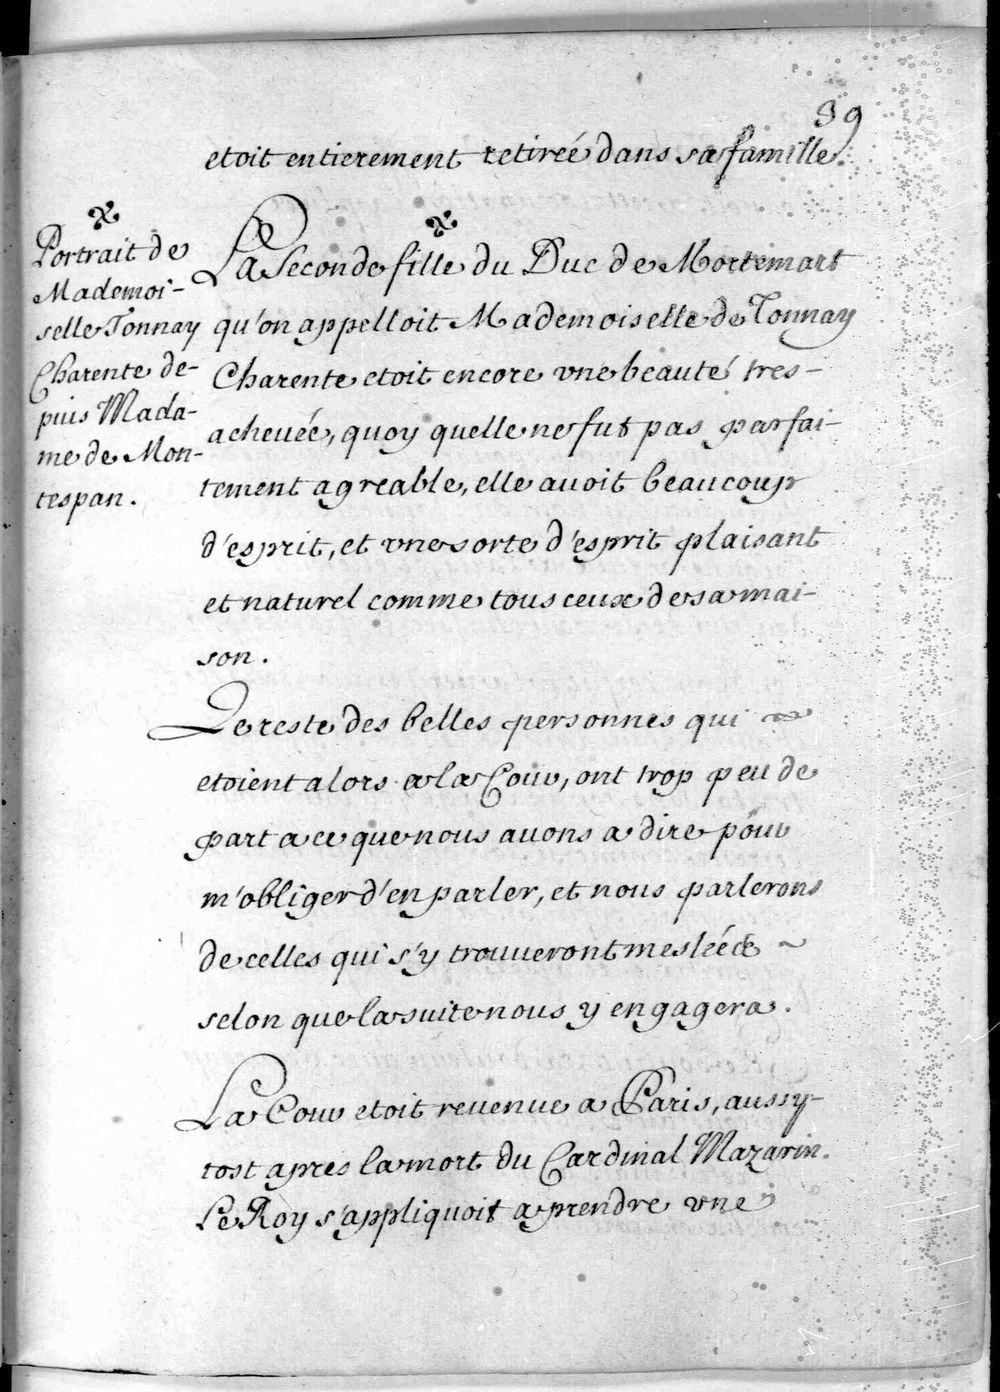 39
etoit entierement retireé dans sa famille.
Portrait de
Mademoi-
selle Tonnay
Charente de-
puis Mada-
me de Mon-
tespan.
La Seconde fille du Duc de Mortemart
qu'on appelloit Mademoiselle de Tonnay
Charente etoit encore vne beauté tres-
acheueé, quoy quelle ne fut pas parfai-
tement agreable, elle auoit beaucoup
d'esprit, et vne sorte d'esprit plaisant
et naturel comme tous ceux de sa mai-
son.
Le reste des belles personnes qui
etoient alors a la Cour, ont trop peu de
part a ce que nous auons a dire pour
m'obliger d'en parler, et nous parlerons
de celles qui s'y trouueront
selon que la suite nous y engagera.
La Cour etoit reuenue a Paris, aussy-
tost apres la mort du Cardinal Mazarin.
Le Roy s'appliquoit a prendre vne